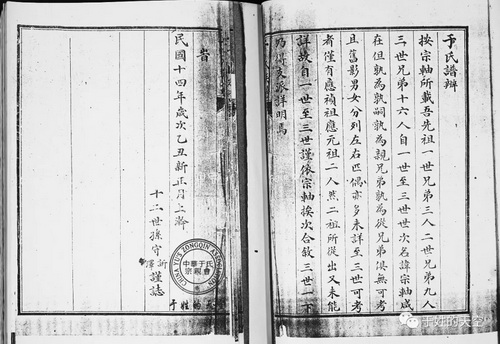 于氏譜辯
按宗軸所載吾先祖一世兄弟三人二世兄弟九人
三世兄弟十六人自一世至三世世次名諱宗軸咸
在但孰為孰嗣孰為親兄弟孰為從兄弟俱無可考
且舊影男女分列左右匹偶亦多未詳至三世可考
者僅有應禎祖應元祖二人然二祖所從出又未能
詳故自一世至三世謹依宗軸挨次合敘三世一下
乃得支派詳明焉
旹
民國十四年歲次乙丑新正月上澣
十二世孫守訢澤謹誌
CHINA YU'S ZONGQIN ASSOCIATION
中華于氏
宗親會
于姓的天空